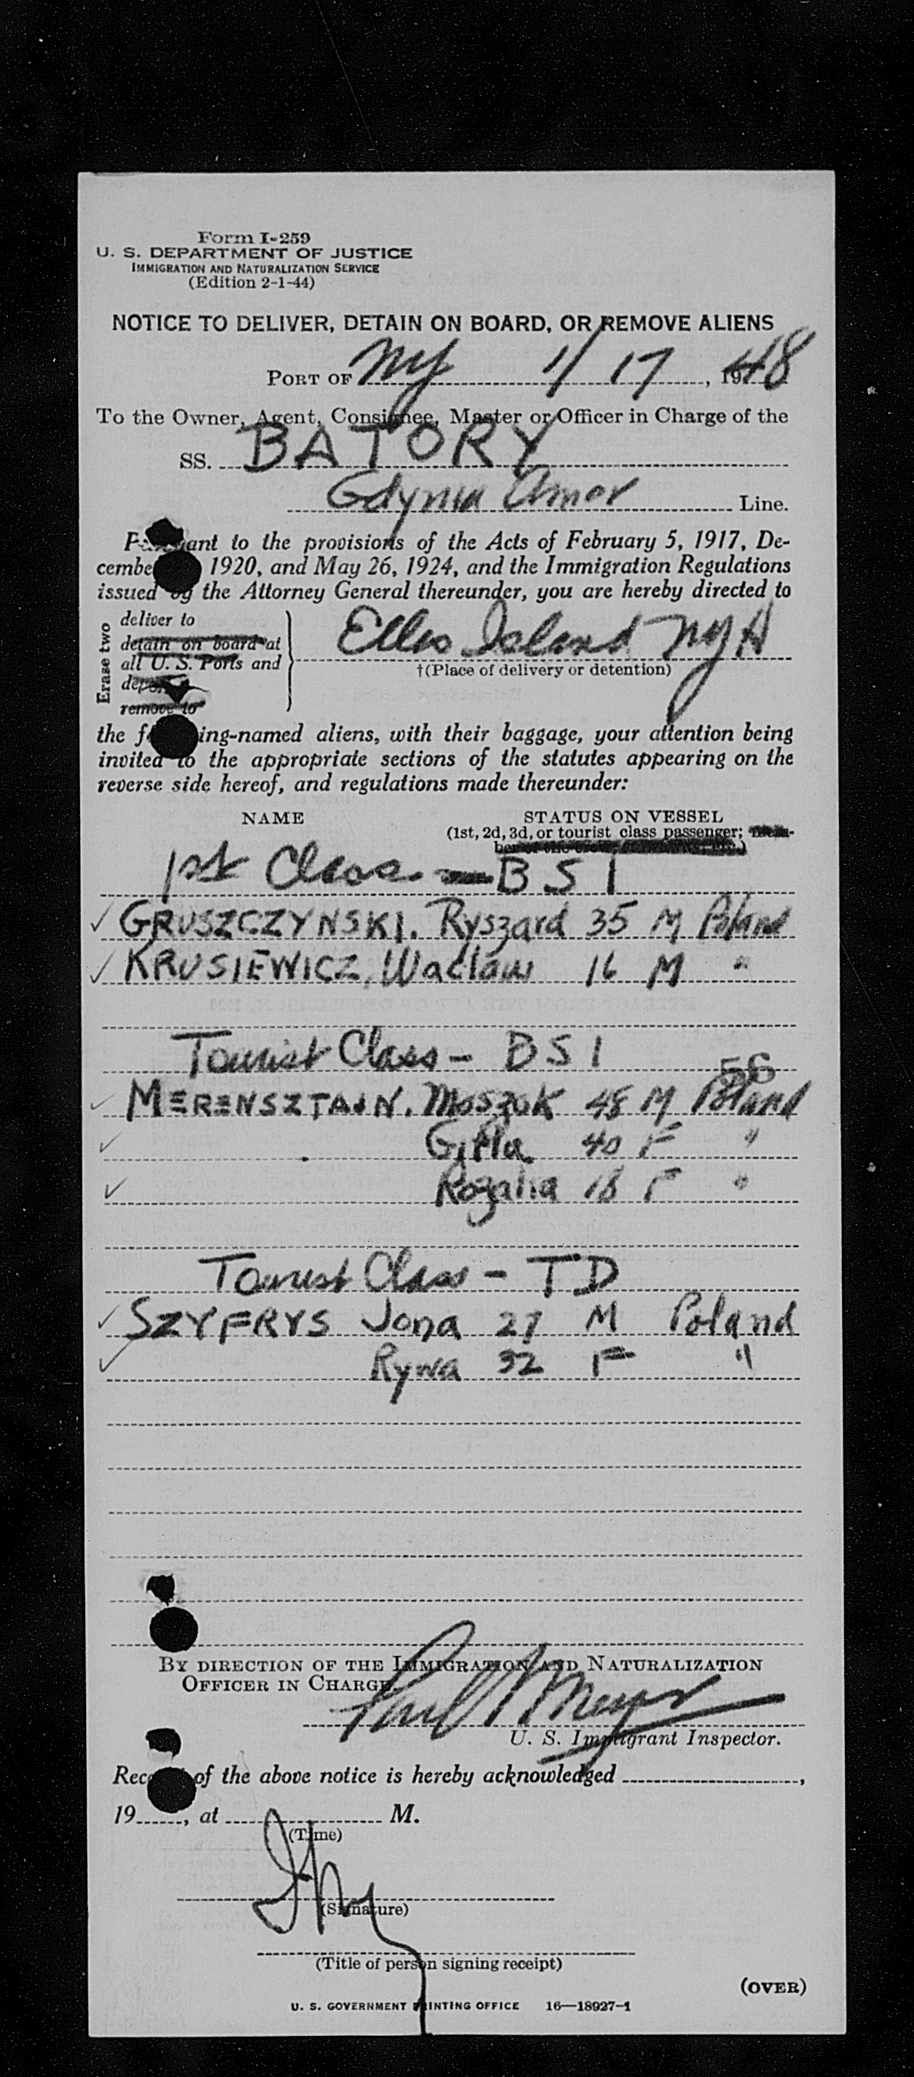 Form I-259
U. S. DEPARTMENT OF JUSTICE
IMMIGRATION AND NATURALIZATION SERVICE
(Edition 2-1-44)
NOTICE TO DELIVER, DETAIN ON BOARD, OR REMOVE ALIENS
PORT OF NY 1/17, 1948
To the Owner, Agent, Consignee, Master or Officer in Charge of the
SS. BATORY
Gdynia Amer Line.
Pursuant to the provisions of the Acts of February 5, 1917, De-
cembe 1920, and May 26, 1924, and the Immigration Regulations
issued by the Attorney General thereunder, you are hereby directed to
Erase two
deliver to
detain on board at
all U. S. Ports and
remove to
Ellis Island NYH
†(Place of delivery or detention)
the f ing-named aliens, with their baggage, your attention being
invited to the appropriate sections of the statutes appearing on the
reverse side hereof, and regulations made thereunder:
NAME STATUS ON VESSEL
(1st, 2d, 3d, or tourist class passenger;
1st Class — BSI
✓ GRUSZCZYNSKI, Ryszard 35 M Poland
✓ KRUSIEWICZ, Waclaw 16 M "
Tourist Class - BSI
56
✓ MERENSZTAJN, Moszek 48 M Poland
✓ Gitla 40 F "
✓ Rozalia 18 F "
Tourist Class - TD
✓ SZYFRYS Jona 27 M Poland
✓ Rywa 32 F "
BY DIRECTION OF THE IMMIGRATION AND NATURALIZATION
OFFICER IN CHARGE.
Paul Meyer
U. S. Immigrant Inspector.
Rec of the above notice is hereby acknowledged ,
19 , at M.
(Time)
(Signature)
(Title of person signing receipt)
(OVER)
U. S. GOVERNMENT PRINTING OFFICE 16—18927-1